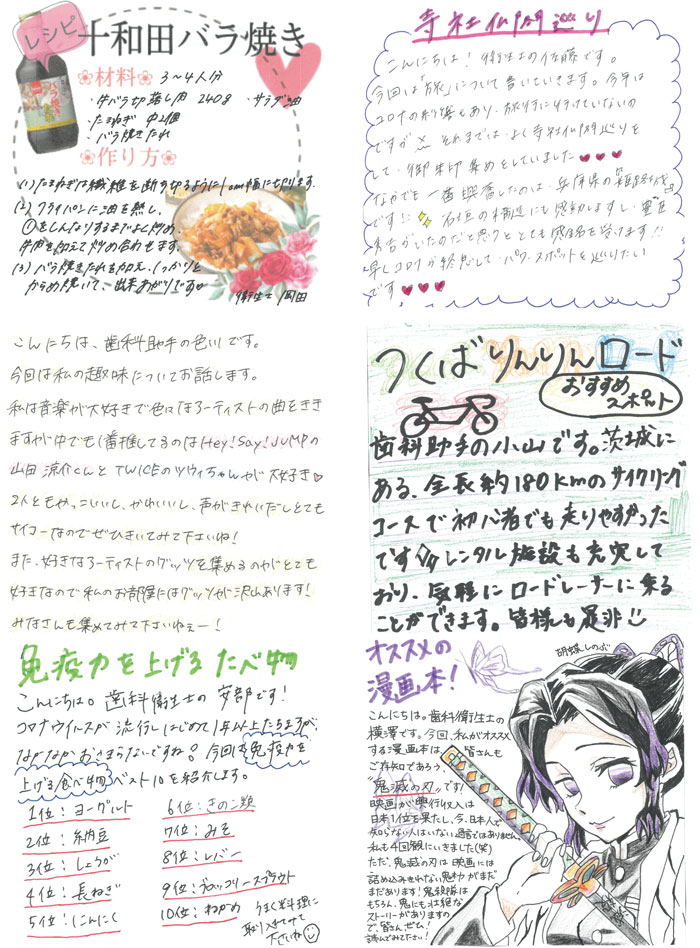 レシピ
十和田バラ焼き
材料 3〜4人分
・牛バラ切り落し肉 240g ・サラダ油
・たまねぎ 中2個
・バラ焼きたれ
作り方
(1) たまねぎは繊維を断ち切るように1cm幅に切ります。
(2) フライパンに油を熱し、
①をしんなりするまでよく炒め、
牛肉を加えて炒め合わせます。
(3) バラ焼きたれを加え、しっかりと
からめ焼いて、出来あがりです
衛生士 岡田
寺社仏閣巡り
こんにちは！衛生士の佐藤です。
今回は「旅」について書いていきます。今年は
コロナの影響もあり、旅行に行けていないの
ですが それまでは、よく寺社仏閣巡りを
して、御朱印集めをしていました
なかでも一番興奮したのは、兵庫県の
です!!石垣の構造にも感動しますし、
がいたのだと思うととても を受けます!!
早くコロナが終息して、パワースポットを巡りたい
です
こんにちは、歯科助手の色川です。
今回は私の趣味についてお話します。
私は音楽が大好きで色んなアーティストの曲をきき
ますが中でも1番推してるのはHey!Say!JUMPの
山田涼介くんとTWICEのツウィちゃんが大好き
2人ともかっこいいし、かわいいし、声がきれいだしとても
サイコーなのでぜひきいてみて下さいね！
また、好きなアーティストのグッツを集めるのがとても
好きなので私のお部屋にはグッツが沢山あります！
みなさんも集めてみて下さいねぇー！
つくばりんりんロード
おすすめ
スポット
歯科助手の小山です。茨城に
ある、全長約180kmのサイクリング
コースで初心者でも走りやすかった
です レンタル施設も充実して
おり、気軽にロードレーサーに乗る
ことができます。皆様も是非!!
免疫力を上げるたべ物
こんにちは。歯科衛生士の安部です！
コロナウイルスが流行しはじめて1年以上たちますが、
なかなかおさまらないですね。今回は免疫力を
上げる食べ物ベスト10を紹介します。
1位：ヨーグルト
2位：納豆
3位：しょうが
4位：長ねぎ
5位：にんにく
6位：きのこ類
7位：みそ
8位：レバー
9位：ブロッコリースプラウト
10位：わかめ
うまく料理に
取り入れてみて
下さいね
オススメの
漫画本！
胡蝶しのぶ
こんにちは。歯科衛生士の
横澤です。今回、私がオススメ
する漫画本は、皆さんも
ご存知であろう、
"鬼滅の刃"です！
映画が興行収入は
日本1位を果たし、今、日本人で
知らない人はいない過言ではありません。
私も4回観にいきました(笑)
ただ、鬼滅の刃は映画には
詰め込みきれない魅力がまだ
まだあります！鬼殺隊は
もちろん、鬼にも壮絶な
ストーリーがありますの
で、皆さん、ぜひ！
読んでみて下さい！